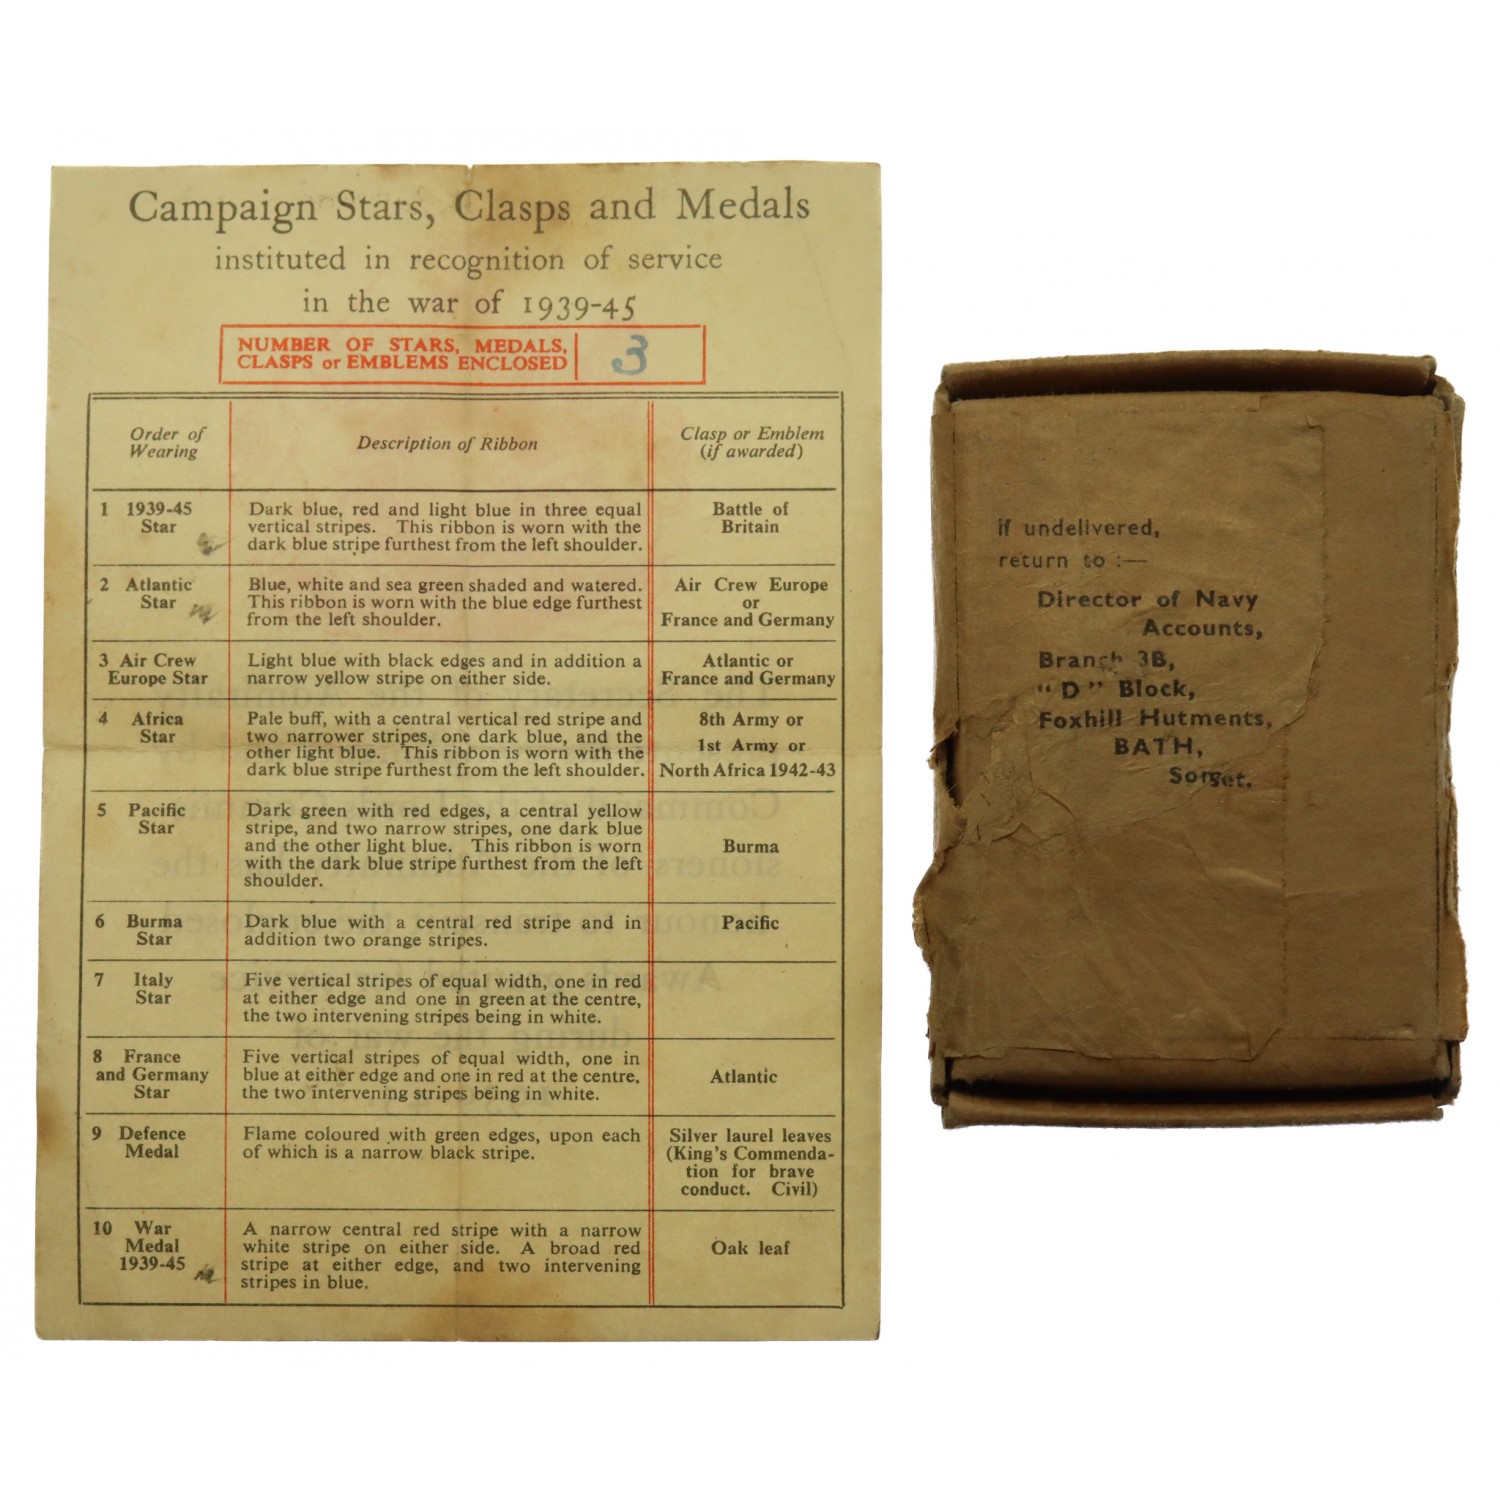 Campaign Stars, Clasps and Medals
instituted in recognition of service
in the war of 1939-45
NUMBER OF STARS, MEDALS,
CLASPS or EMBLEMS ENCLOSED
3
Order of
Wearing
Description of Ribbon
Clasp or Emblem
(if awarded)
1 1939-45
Star
Dark blue, red and light blue in three equal
vertical stripes. This ribbon is worn with the
dark blue stripe furthest from the left shoulder.
Battle of
Britain
2 Atlantic
Star
Blue, white and sea green shaded and watered.
This ribbon is worn with the blue edge furthest
from the left shoulder.
Air Crew Europe
or
France and Germany
3 Air Crew
Europe Star
Light blue with black edges and in addition a
narrow yellow stripe on either side.
Atlantic or
France and Germany
4 Africa
Star
Pale buff, with a central vertical red stripe and
two narrower stripes, one dark blue, and the
other light blue. This ribbon is worn with the
dark blue stripe furthest from the left shoulder.
8th Army or
1st Army or
North Africa 1942-43
5 Pacific
Star
Dark green with red edges, a central yellow
stripe, and two narrow stripes, one dark blue
and the other light blue. This ribbon is worn
with the dark blue stripe furthest from the left
shoulder.
Burma
6 Burma
Star
Dark blue with a central red stripe and in
addition two orange stripes.
Pacific
7 Italy
Star
Five vertical stripes of equal width, one in red
at either edge and one in green at the centre,
the two intervening stripes being in white.
8 France
and Germany
Star
Five vertical stripes of equal width, one in
blue at either edge and one in red at the centre,
the two intervening stripes being in white.
Atlantic
9 Defence
Medal
Flame coloured with green edges, upon each
of which is a narrow black stripe.
Silver laurel leaves
(King's Commenda-
tion for brave
conduct. Civil)
10 War
Medal
1939-45
A narrow central red stripe with a narrow
white stripe on either side. A broad red
stripe at either edge, and two intervening
stripes in blue.
Oak leaf
If undelivered,
return to :—
Director of Navy
Accounts,
Branch 3B,
"D" Block,
Foxhill Hutments,
BATH,